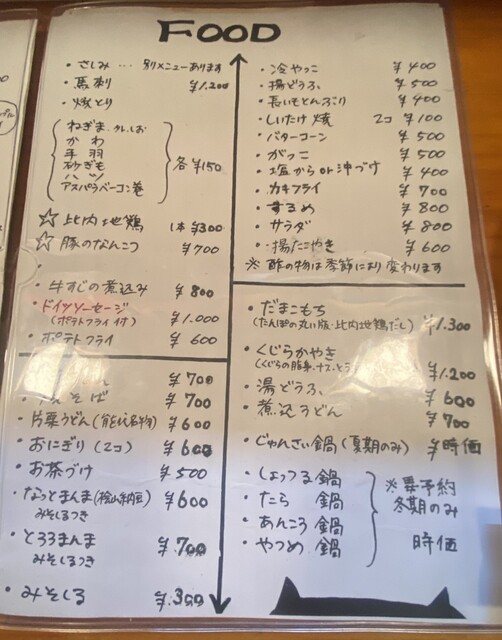 FOOD
・さしみ … 別メニューあります
・馬刺 ¥1,200
・焼とり
ねぎま タレ.しお
かわ
手羽
砂ぎも
ハツ
アスパラベーコン巻
各¥150
☆比内地鶏 1本 ¥300
☆豚のなんこつ ¥700
・牛すじの煮込み ¥800
・ドイツソーセージ
(ポテトフライ付) ¥1.000
・ポテトフライ ¥600
¥700
そば ¥700
・片栗うどん(能代名物) ¥600
・おにぎり(2コ) ¥600
・お茶づけ ¥500
・なっとまんま(桧山納豆) ¥600
みそしるつき
・とろろまんま ¥.700
みそしるつき
・みそしる ¥.300
・冷やっこ ¥400
・揚どうふ ¥500
・長いもとんぶり ¥400
・しいたけ焼 2コ ¥100
・バターコーン ¥500
・がっこ ¥500
・塩から or 沖づけ ¥400
・カキフライ ¥700
・するめ ¥800
・サラダ ¥800
・揚たこやき ¥600
※ 酢の物は季節により変わります
・だまこもち
(たんぽの丸い版・比内地鶏だし) ¥1.300
・くじらかやき
(くじらの脂身.ナス. ¥1.200
・湯どうふ ¥600
・煮込うどん ¥700
・じゅんさい鍋(夏期のみ) ¥時価
・しょっつる鍋
・たら 鍋
・あんこう鍋
・やつめ 鍋
※要予約
冬期のみ
時価